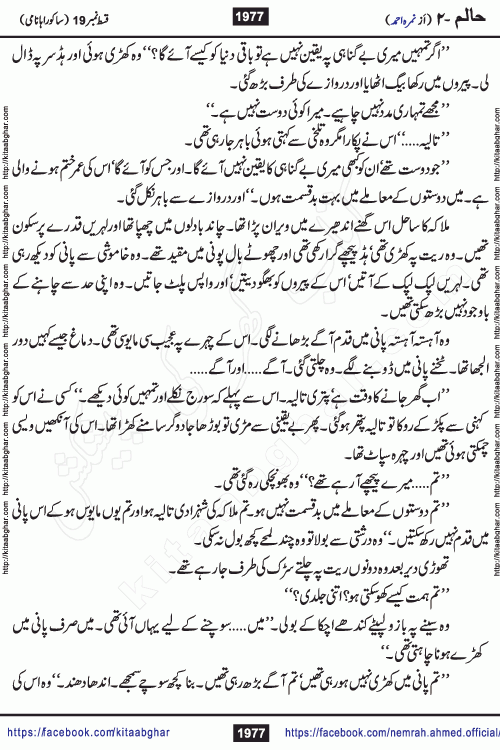 حالم -۲ (از نمرہ احمد) 1977 قسط نمبر 19 (ساکورا ہانامی)
’’اگر تمہیں میری بے گناہی پہ یقین نہیں ہے تو باقی دنیا کو کیسے آئے گا؟‘‘ وہ کھڑی ہوئی اور ہڈ سر پہ ڈال
لی۔ پیروں میں رکھا بیگ اٹھایا اور دروازے کی طرف بڑھ گئی۔
’’مجھے تمہاری مدد نہیں چاہیے۔ میرا کوئی دوست نہیں ہے۔‘‘
’’تالیہ.....‘‘ اس نے پکارا مگر وہ تلخی سے کہتی ہوئی باہر جا رہی تھی۔
’’جو دوست تھے ان کو بھی میری بے گناہی کا یقین نہیں آئے گا۔ اور جس کو آئے گا‘ اس کی عمر ختم ہونے والی
ہے۔ میں دوستوں کے معاملے میں بہت بدقسمت ہوں۔‘‘ اور دروازے سے باہر نکل گئی۔
ملاکہ کا ساحل اس گھنے اندھیرے میں ویران پڑا تھا۔ چاند بادلوں میں چھپا تھا اور لہریں قدرے پرسکون
تھیں۔ وہ ریت پہ کھڑی تھی‘ ہڈ پیچھے گرا رکھی تھی اور چھوٹے بال پونی میں مقید تھے۔ وہ خاموشی سے پانی کو دیکھ رہی
تھی۔ لہریں لپک لپک کے آتیں‘ اس کے پیروں کو بھگو دیتیں‘ اور واپس پلٹ جاتیں۔ وہ اپنی حد سے چاہنے کے
باوجود نہیں بڑھ سکتی تھیں۔
وہ آہستہ آہستہ پانی میں قدم آگے بڑھانے لگی۔ اس کے چہرے پہ عجیب سی مایوسی تھی۔ دماغ جیسے کہیں دور
الجھا تھا۔ ٹخنے پانی میں ڈوبنے لگے۔ وہ چلتی گئی۔ آگے.....اور آگے......
’’اب گھر جانے کا وقت ہے‘ پتری تالیہ۔ اس سے پہلے کہ سورج نکلے اور تمہیں کوئی دیکھے۔‘‘ کسی نے اس کو
کہنی سے پکڑ کے روکا تو تالیہ پتھر ہو گئی۔ پھر بے یقینی سے مڑی تو بوڑھا جادوگر سامنے کھڑا تھا۔ اس کی آنکھیں ویسی
چمکتی ہوئی تھیں اور چہرہ سپاٹ تھا۔
’’تم.....میرے پیچھے آ رہے تھے؟‘‘ وہ بھونچکی رہ گئی تھی۔
’’تم دوستوں کے معاملے میں بدقسمت نہیں ہو۔ تم ملاکہ کی شہزادی تالیہ ہو اور تم یوں مایوس ہو کے اس پانی
میں قدم نہیں رکھ سکتیں۔‘‘ وہ درشتی سے بولا تو وہ چند لمحے کچھ بول نہ سکی۔
تھوڑی دیر بعد وہ دونوں ریت پہ چلتے سڑک کی طرف جا رہے تھے۔
’’تم ہمت کیسے کھو سکتی ہو؟ اتنی جلدی؟‘‘
وہ سینے پہ بازو لپیٹے کندھے اچکا کے بولی۔ ’’میں.....سوچنے کے لیے یہاں آئی تھی۔ میں صرف پانی میں
کھڑے ہونا چاہتی تھی۔‘‘
’’تم پانی میں کھڑی نہیں ہو رہی تھیں‘ تم آگے بڑھ رہی تھیں۔ بنا کچھ سوچے سمجھے۔ اندھا دھند۔‘‘ وہ اس کی
https://facebook.com/kitaabghar 1977 https://facebook.com/nemrah.ahmed.official/
http://kitaabghar.com http://kitaabghar.com http://kitaabghar.com http://kitaabghar.com http://kitaabghar.com